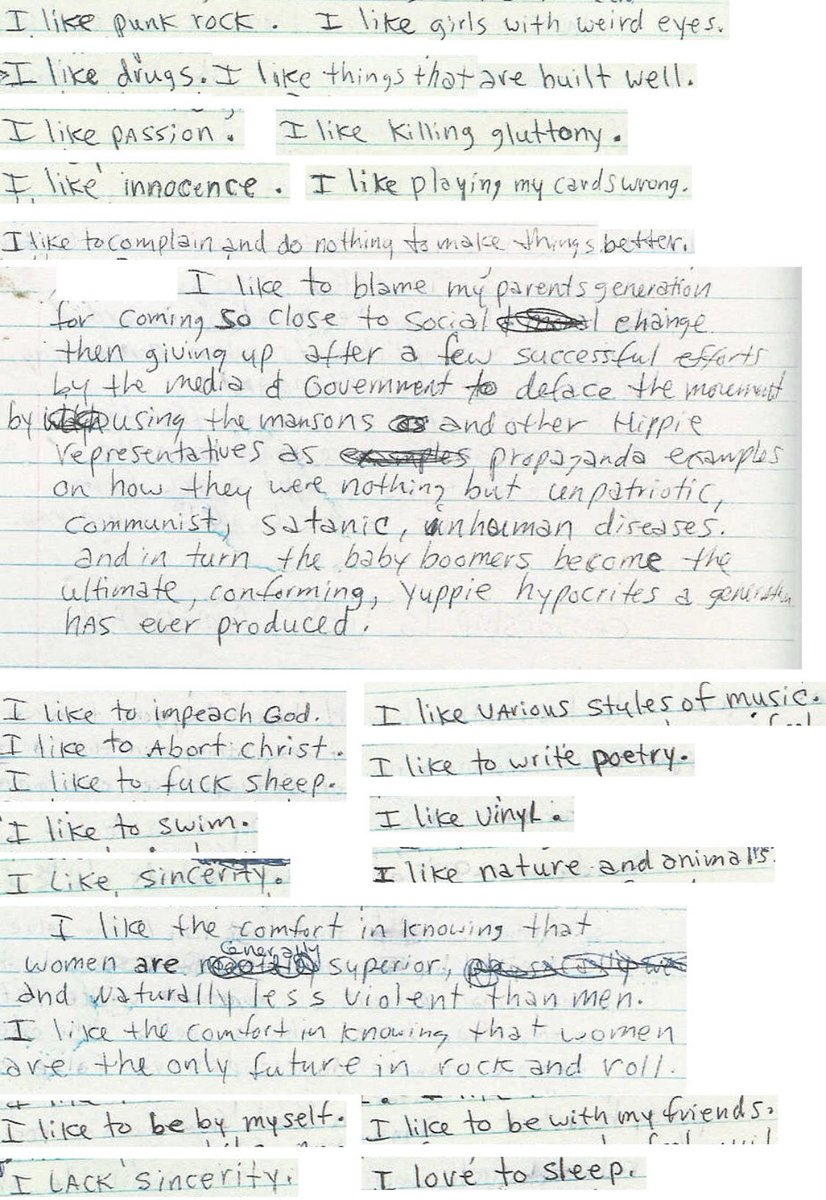 I like punk rock. I like girls with weird eyes.
I like drugs. I like things that are built well.
I like passion. I like killing gluttony.
I like innocence. I like playing my cards wrong.
I like to complain and do nothing to make things better.
I like to blame my parents generation
for coming so close to social change
then giving up after a few successful efforts
by the media & Government to deface the movement
by using the mansons and other Hippie
representatives as propaganda examples
on how they were nothing but unpatriotic,
communist, satanic, inhuman diseases.
and in turn the baby boomers become the
ultimate, conforming, yuppie hypocrites a generation
has ever produced.
I like to impeach God.
I like to Abort christ.
I like to fuck sheep.
I like to swim.
I like sincerity.
I like various styles of music.
I like to write poetry.
I like vinyl.
I like nature and animals.
I like the comfort in knowing that
women are Generally superior,
and naturally less violent than men.
I like the comfort in knowing that women
are the only future in rock and roll.
I like to be by myself. I like to be with my friends.
I LACK sincerity. I love to sleep.